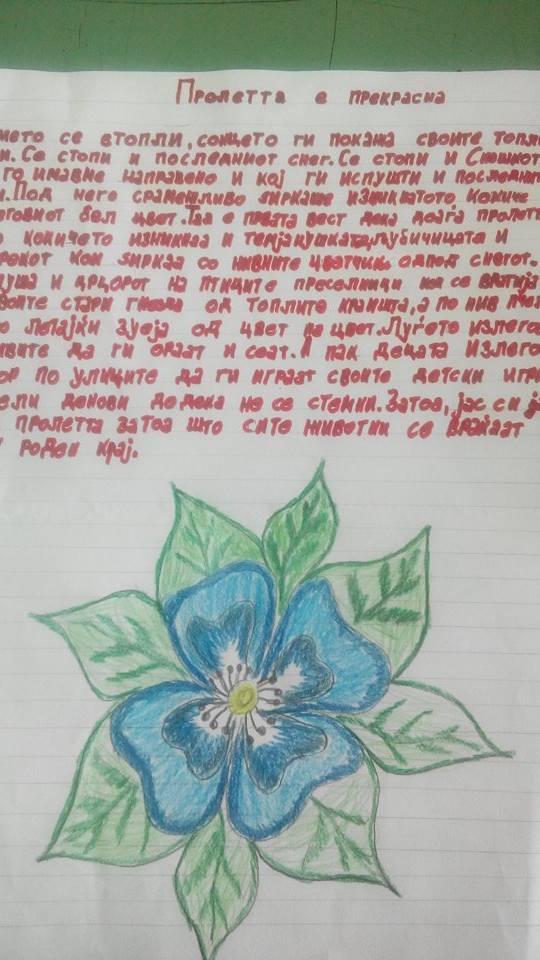 Пролетта е прекрасна
мето се втопли, сонцето ги покажа своите топли
и. Се стопи и последниот снег. Се стопи и Снешкот
го имавме направено и кој ги испушти и последните
и. Под него срамежливо ѕиркаше изникнатото, кокиче
говиот бел цвет. Таа е првата вест дека доаѓа пролетт
о кокичето изникнаа и темјанушката, љубичицата и
рокот кои ѕиркаа со нивните цветчиња одпод снегот.
луша и црцорот на птиците преселници кои се вратија
воите стари гнезда од топлите краишта, а по нив
о летајќи зујеја од цвет на цвет. Луѓето излегоа
ивите да ги ораат и сеат. А пак децата излегоа
ор по улиците да ги играат своите детски игри
ели денови додека не се стемни. Затоа, јас си ја
пролетта затоа што сите животни се враќаат
роден крај.